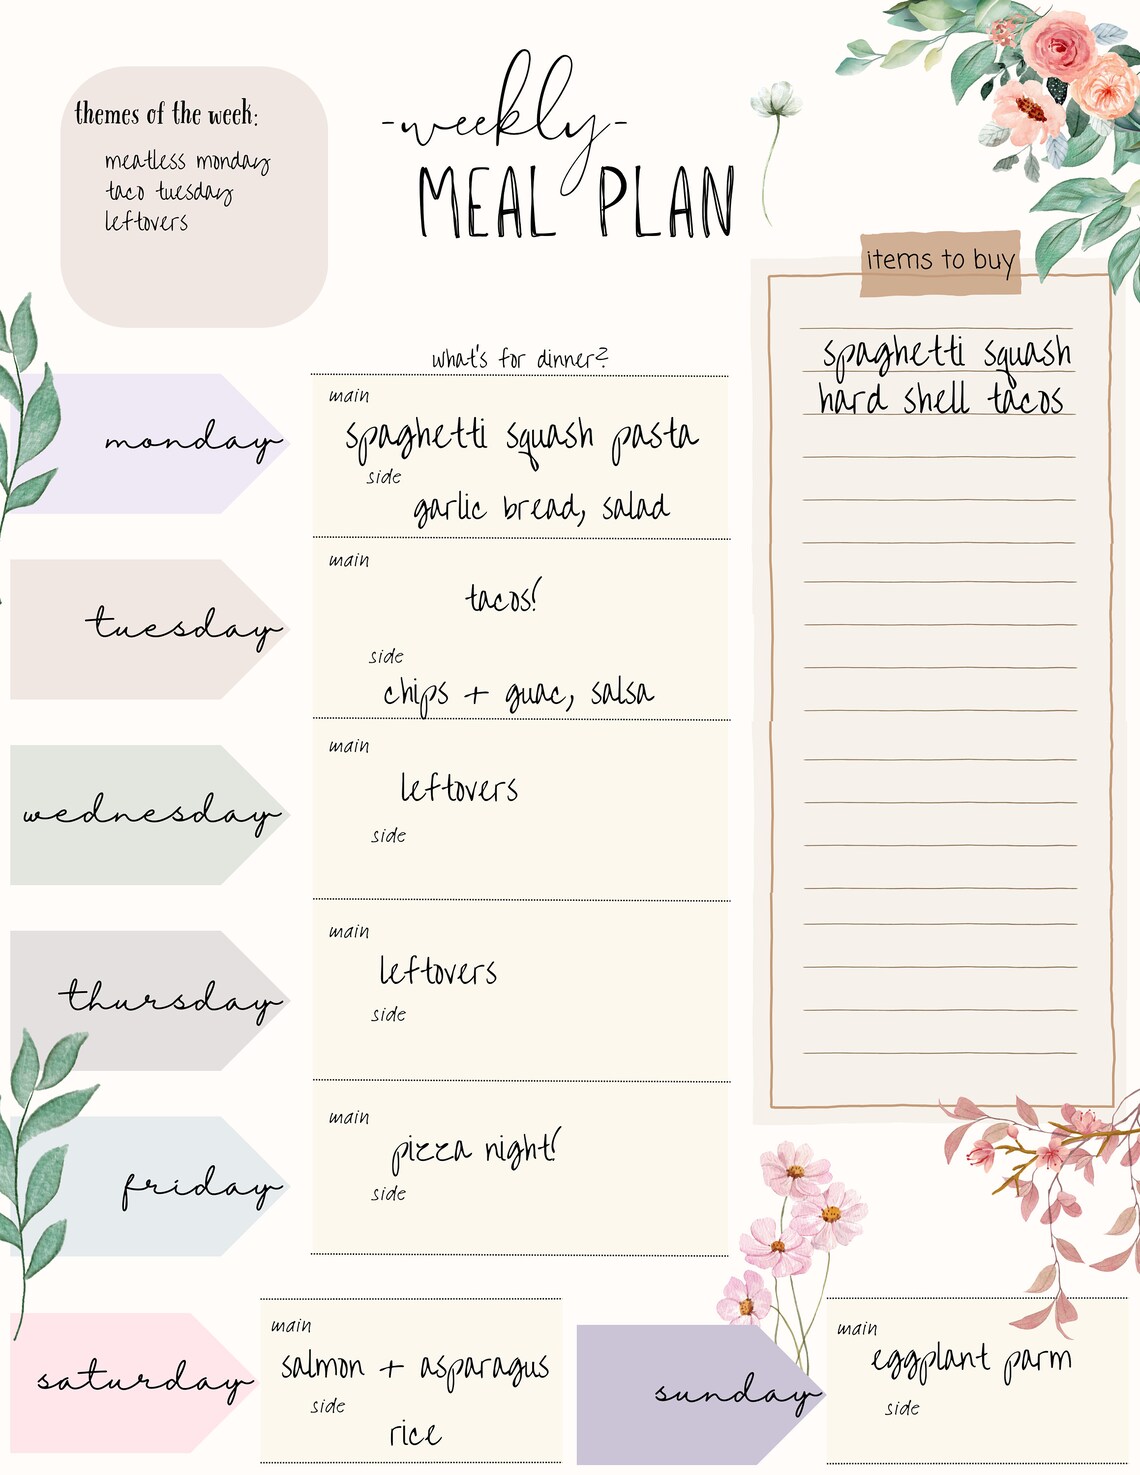 themes of the week:
meatless monday
taco tuesday
leftovers
-weekly-
MEAL PLAN
items to buy
spaghetti squash
hard shell tacos
what's for dinner?
monday
main
spaghetti squash pasta
side
garlic bread, salad
tuesday
main
tacos!
side
chips + guac, salsa
wednesday
main
leftovers
side
thursday
main
leftovers
side
friday
main
pizza night!
side
saturday
main
salmon + asparagus
side
rice
sunday
main
eggplant parm
side